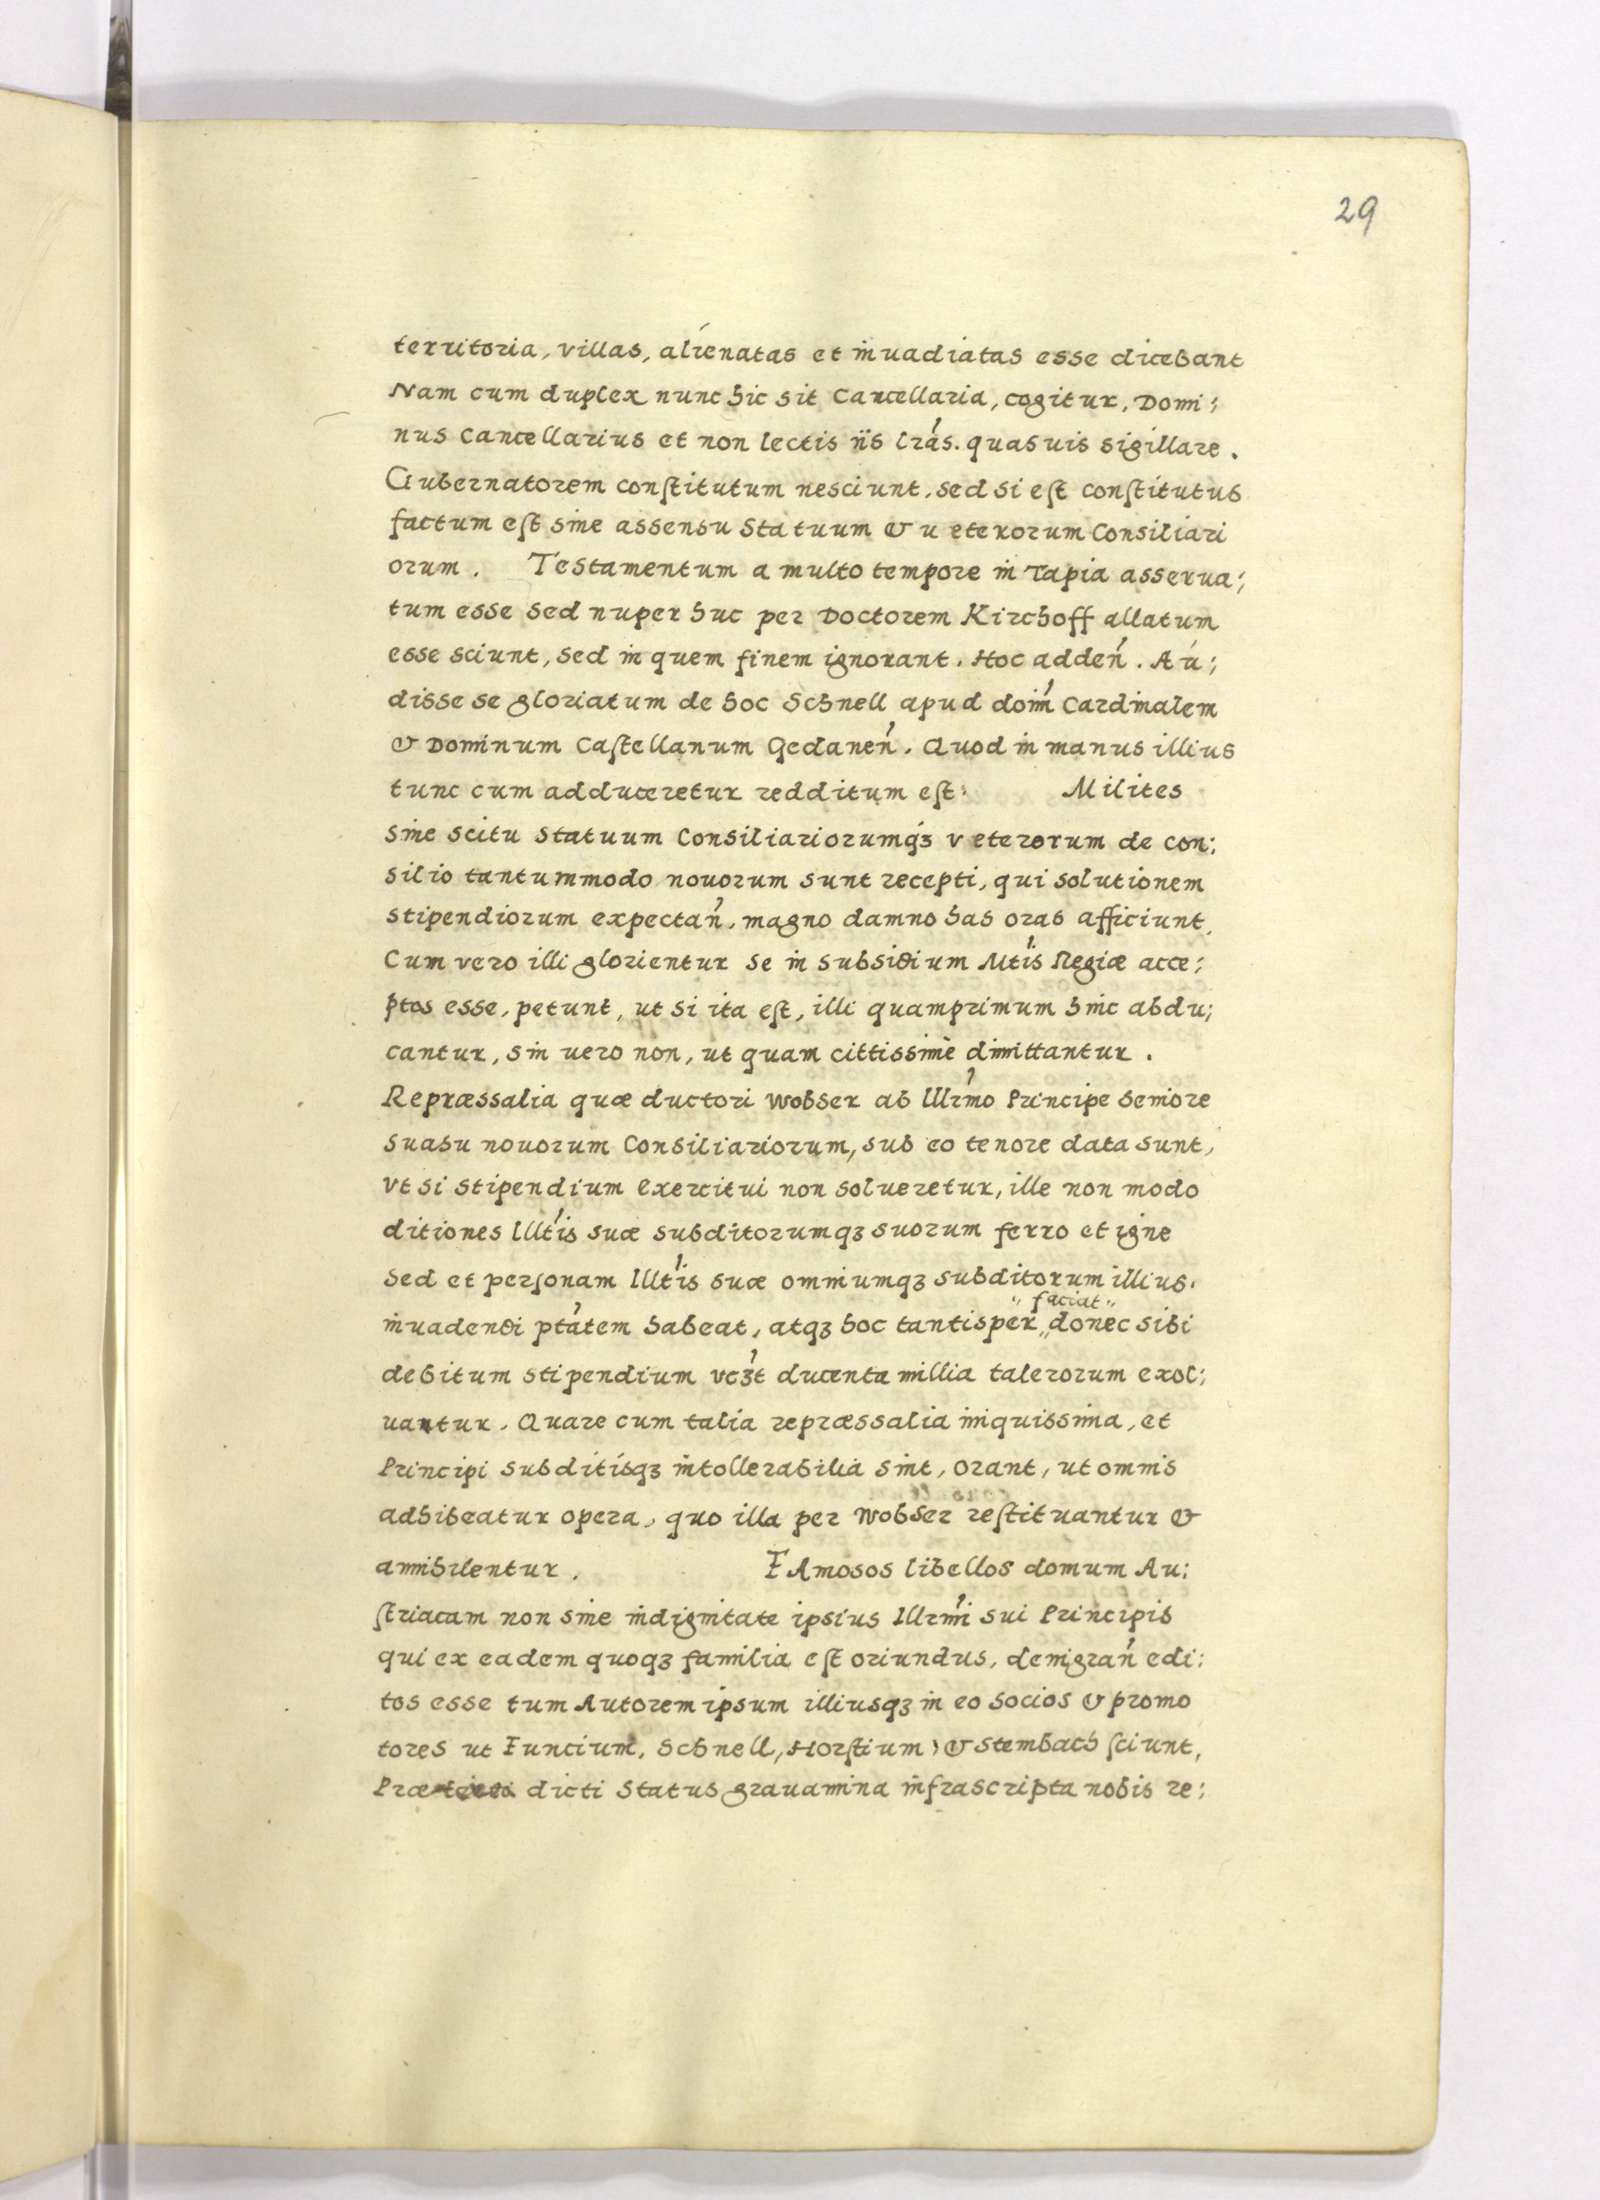 29
territoria, villas, alienatas et inuadiatas esse dicebant
Nam cum duplex nunc hic sit Cancellaria, cogitur, Domi;
nus Cancellarius et non lectis iis lras. quasuis sigillare.
Gubernatorem constitutum nesciunt, sed si est constitutus
factum est sine assensu Statuum & ueterorum Consiliari
orum. Testamentum a multo tempore in Tapia asserua;
tum esse sed nuper huc per Doctorem Kirchoff allatum
esse sciunt, sed in quem finem ignorant. Hoc adden. Au;
disse se gloriatum de hoc Schnell apud doim Cardinalem
& Dominum Castellanum Gedanen. Quod in manus illius
tunc cum adduceretur redditum est: Milites
sine scitu Statuum Consiliariorumqꝫ veterorum de con;
silio tantummodo nouorum sunt recepti, qui solutionem
stipendiorum expectan, magno damno has oras afficiunt,
Cum vero illi glorientur se in subsidium Mtis Regiæ acce;
ptos esse, petunt, ut si ita est, illi quamprimum hinc abdu;
cantur, sin uero non, ut quam cittissime dimittantur.
Repræssalia quæ ductori Wobser ab Illrmo Principe Seniore
suasu nouorum Consiliariorum, sub eo tenore data sunt,
vt si stipendium exercitui non solueretur, ille non modo
ditiones Illtis suæ subditorumqꝫ suorum ferro et igne
Sed et personam Illtis suæ omniumqꝫ subditorum illius.
" faciat "
inuadendi ptatem habeat, atqꝫ hoc tantisper „ donec sibi
debitum stipendium vcꝫt ducenta millia talerorum exol;
uantur. Quare cum talia repræssalia iniquissima, et
Principi subditisqꝫ intollerabilia sint, orant, ut omnis
adhibeatur opera, quo illa per Wobser restituantur &
annihilentur. FAmosos libellos domum Au;
striacam non sine indignitate ipsius Illrmi sui Principis
qui ex eadem quoqꝫ familia est oriundus, denigran edi:
tos esse tum Autorem ipsum illiusqꝫ in eo socios & promo
tores ut Funcium, Schnell, Horstium, & Steinbach sciunt,
Præ dicti Status grauamina infrascripta nobis re;